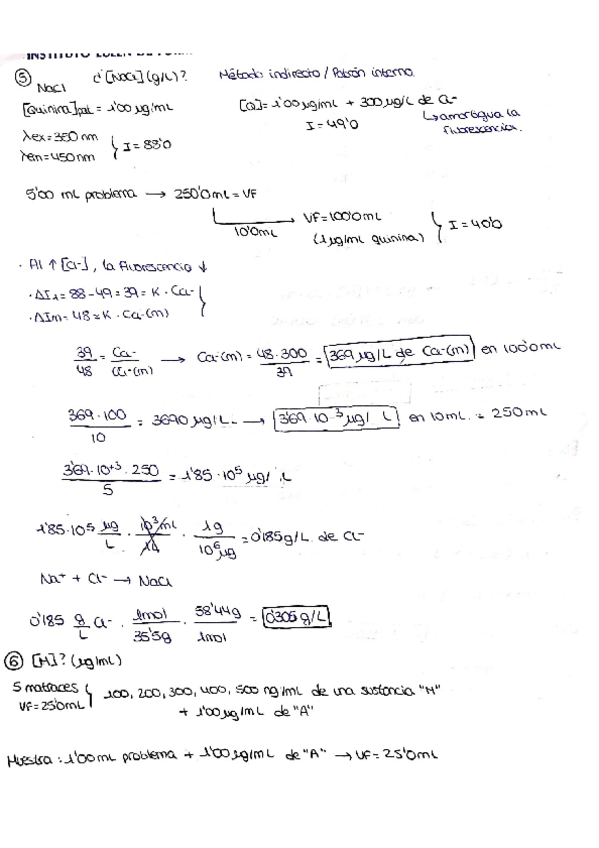 ⑤ NaCl ¿[NaCl] (g/L)? Método indirecto / Patrón interno.
[Quinina]pat = 1'00 µg/mL [Q] = 1'00 µg/mL + 300 µg/L de Cl-
λex = 350 nm } I = 88'0 I = 49'0 ↳ amortigua la
λem = 450 nm fluorescencia.
5'00 mL problema → 250'0 mL = VF
10'0 mL → VF = 100'0 mL } I = 40'0
(1 µg/mL quinina)
· Al ↑ [Cl-], la fluorescencia ↓
· ΔI1 = 88 - 49 = 39 = K · CCl-
· ΔIm = 48 = K · CCl-(m)
39/48 = CCl-/CCl-(m) → CCl-(m) = 48 · 300/39 = 369 µg/L de CCl-(m) en 100'0 mL
369 · 100/10 = 3690 µg/L → 3'69 · 10-3 µg/ L en 10 mL = 250 mL
3'69 · 10+3 · 250/5 = 1'85 · 10⁵ µg/ L
1'85 · 10⁵ µg/L · 10³ mL/1L · 1g/10⁶ µg = 0'185 g/L de Cl-
Na+ + Cl- → NaCl
0'185 g/L Cl- · 1mol/35'5g · 58'44g/1mol = 0'305 g/L
⑥ [M]? (µg/mL)
5 matraces { 100, 200, 300, 400, 500 ng/mL de una sustancia "M"
VF = 25'0 mL + 1'00 µg/mL de "A"
Muestra: 1'00 mL problema + 1'00 µg/mL de "A" → VF = 25'0 mL